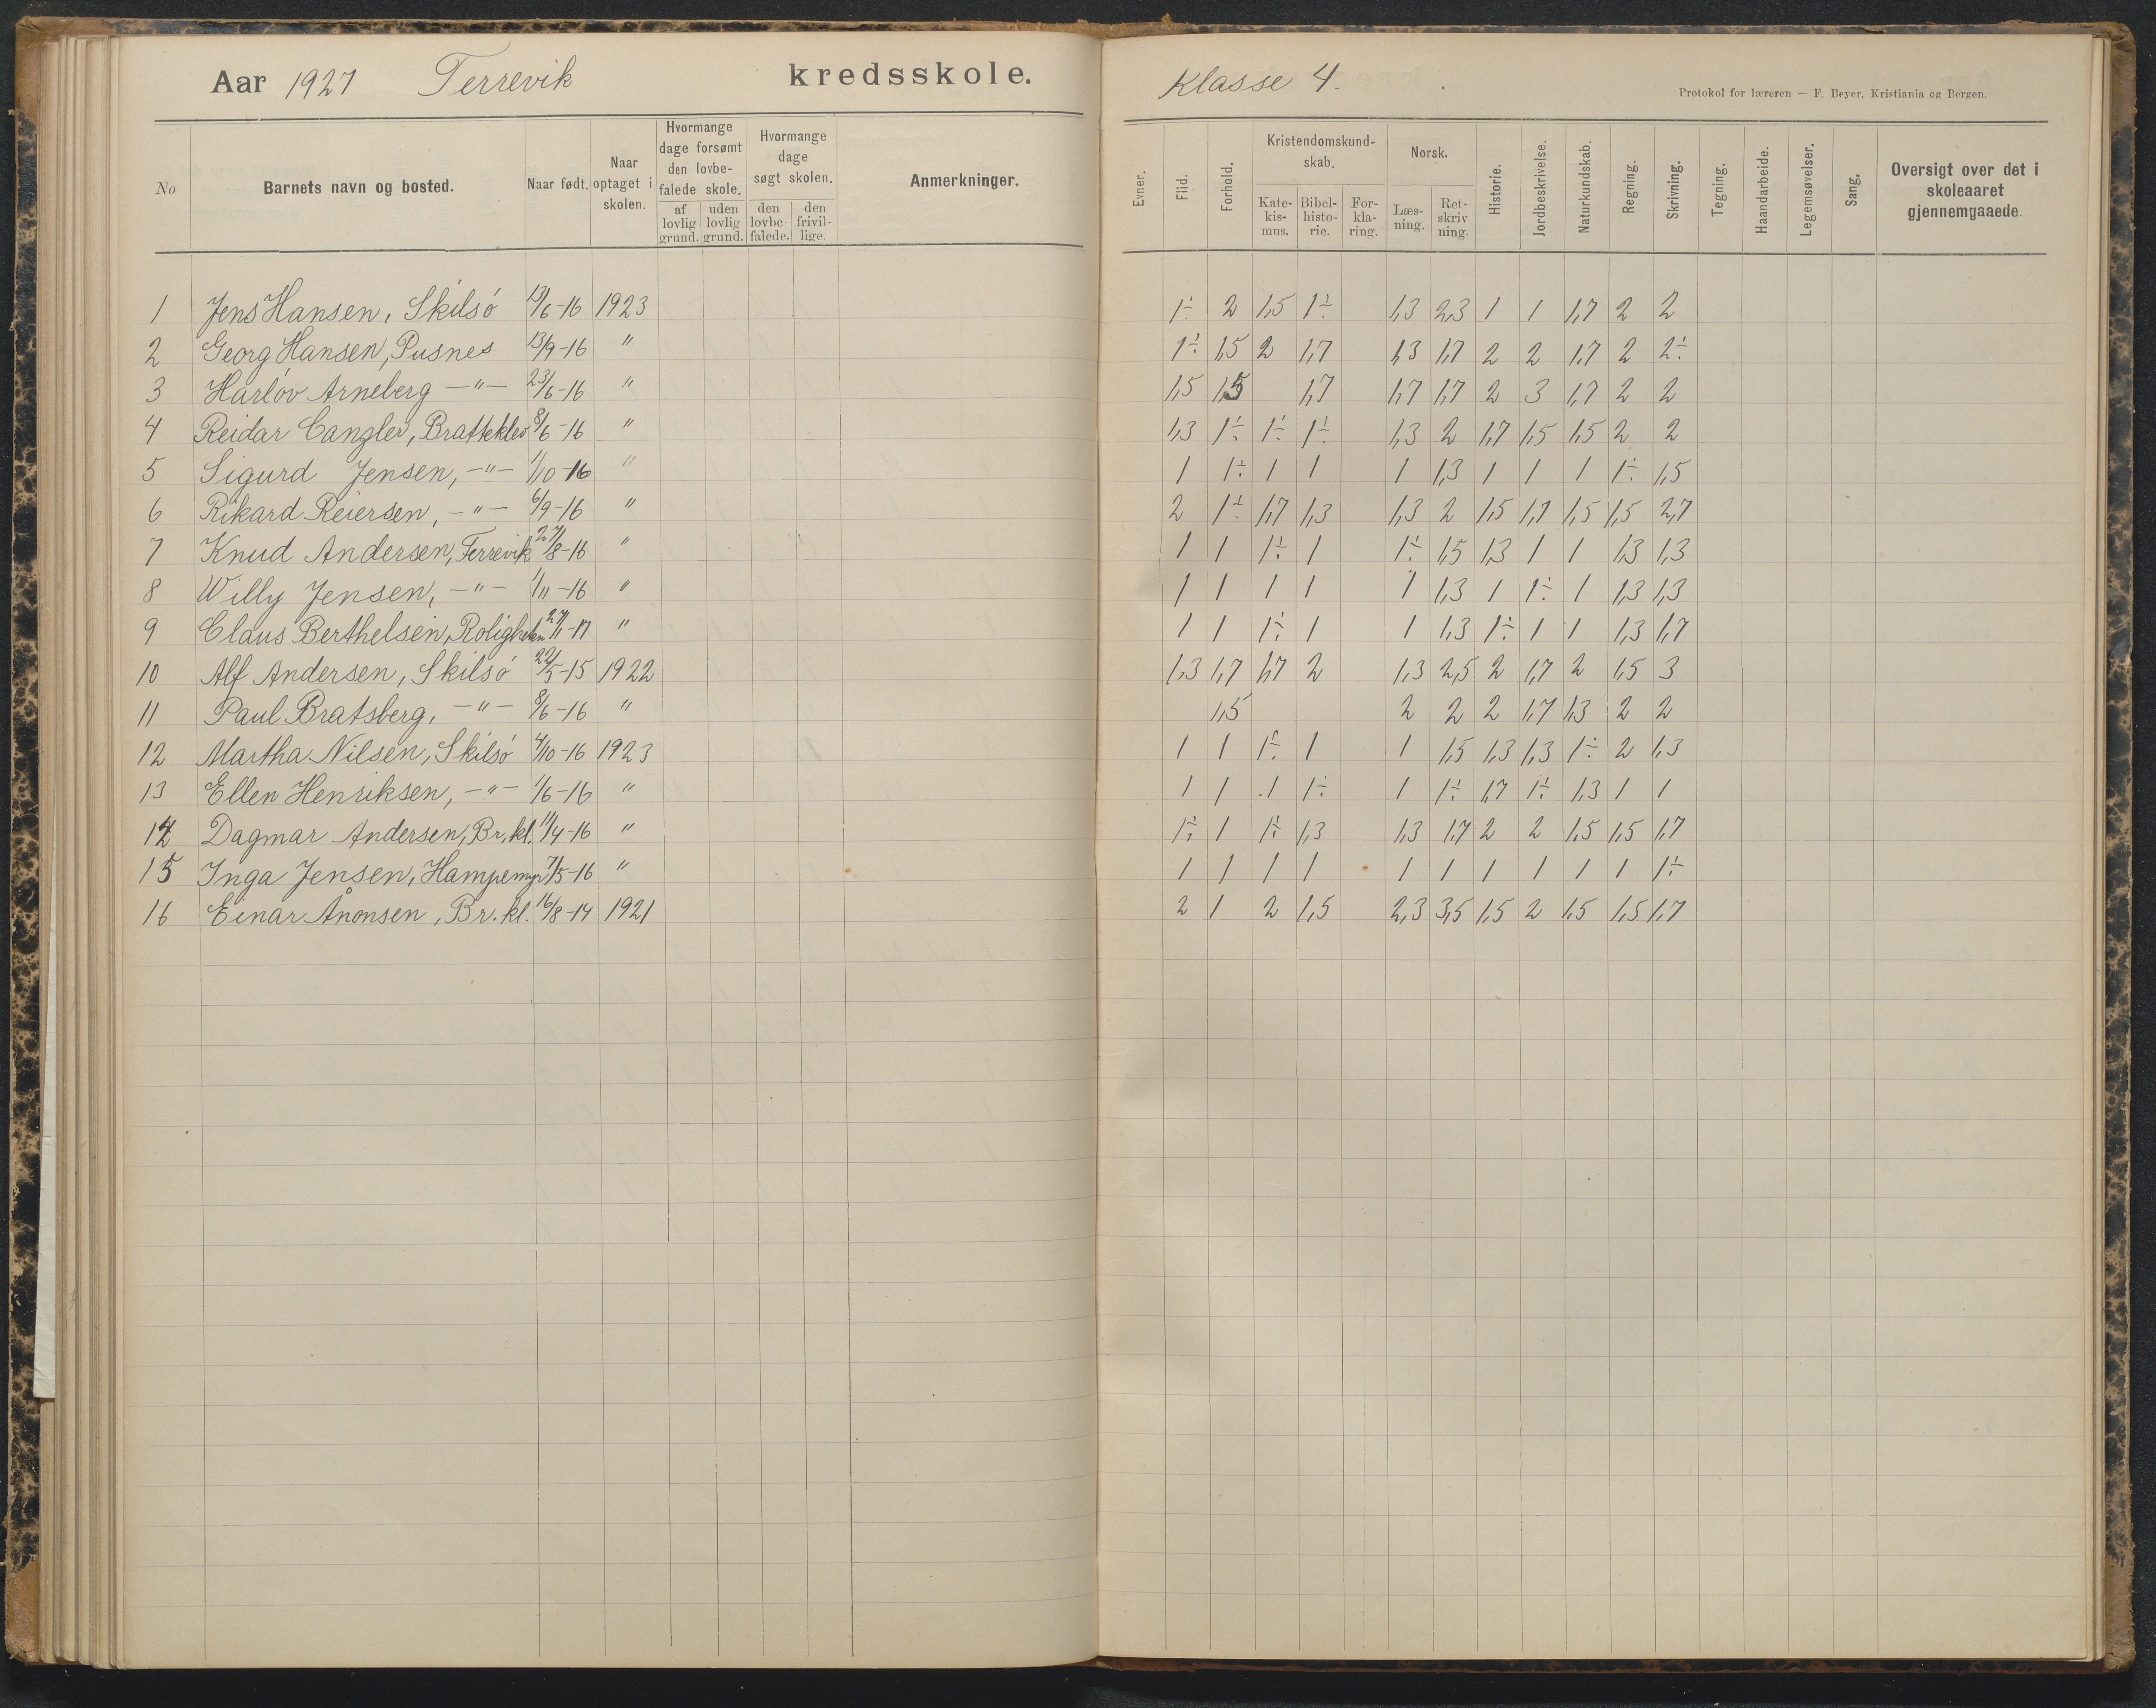 Aar 1927 Terrevik kredsskole.
No
Barnets navn og bosted.
Naar født.
Naar optaget i skolen.
Hvormange dage forsømt den lovbefalede skole.
af lovlig grund.
uden lovlig grund.
Hvormange dage søgt skolen.
den lovbefalede.
den frivillige.
Anmerkninger.
1 Jens Hansen, Skilsø 13/6-16 1923
2 Georg Hansen, Pusnes 13/9-16 "
3 Harløv Arneberg -"- 23/6-16 "
4 Reidar Cangler, Bratteklev 8/6-16 "
5 Sigurd Jensen, -"- 1/10-16 "
6 Rikard Reiersen, -"- 6/9-16 "
7 Knud Andersen, Terrevik 27/8-16 "
8 Willy Jensen, -"- 1/11-16 "
9 Claus Berthelsen, Roligheten 27/1-17 "
10 Alf Andersen, Skilsø 22/5-15 1922
11 Paul Bratsberg, -"- 8/6-16 "
12 Martha Nilsen, Skilsø 4/10-16 1923
13 Ellen Henriksen, -"- 1/6-16 "
14 Dagmar Andersen, Br.kl. 11/4-16 "
15 Inga Jensen, Hampemyr 7/5-16 "
16 Einar Ånonsen, Br.kl. 16/8-14 1921
Klasse 4.
Protokol for læreren — F. Beyer, Kristiania og Bergen.
Evner.
Flid.
Forhold.
Kristendomskundskab.
Katekismus.
Bibelhistorie.
Forklaring.
Norsk.
Læsning.
Retskrivning.
Historie.
Jordbeskrivelse.
Naturkundskab.
Regning.
Skrivning.
Tegning.
Haandarbeide.
Legemsøvelser.
Sang.
Oversigt over det i skoleaaret gjennemgaaede.
1÷ 2 1,5 1÷ 1,3 2,3 1 1 1,7 2 2
1÷ 1,5 2 1,7 1,3 1,7 2 2 1,7 2 2÷
1,5 1,5 1,7 1,7 1,7 2 3 1,7 2 2
1,3 1÷ 1÷ 1÷ 1,3 2 1,7 1,5 1,5 2 2
1 1÷ 1 1 1 1,3 1 1 1 1÷ 1,5
2 1÷ 1,7 1,3 1,3 2 1,5 1,7 1,5 1,5 2,7
1 1 1÷ 1 1÷ 1,5 1,3 1 1 1,3 1,3
1 1 1 1 1 1,3 1 1÷ 1 1,3 1,3
1 1 1÷ 1 1 1,3 1÷ 1 1 1,3 1,7
1,3 1,7 1,7 2 1,3 2,5 2 1,7 2 1,5 3
1,5 2 2 2 1,7 1,3 2 2
1 1 1÷ 1 1 1,5 1,3 1,3 1÷ 2 1,3
1 1 1 1÷ 1 1÷ 1,7 1÷ 1,3 1 1
1÷ 1 1÷ 1,3 1,3 1,7 2 2 1,5 1,5 1,7
1 1 1 1 1 1 1 1 1 1 1÷
2 1 2 1,5 2,3 3,5 1,5 2 1,5 1,5 1,7